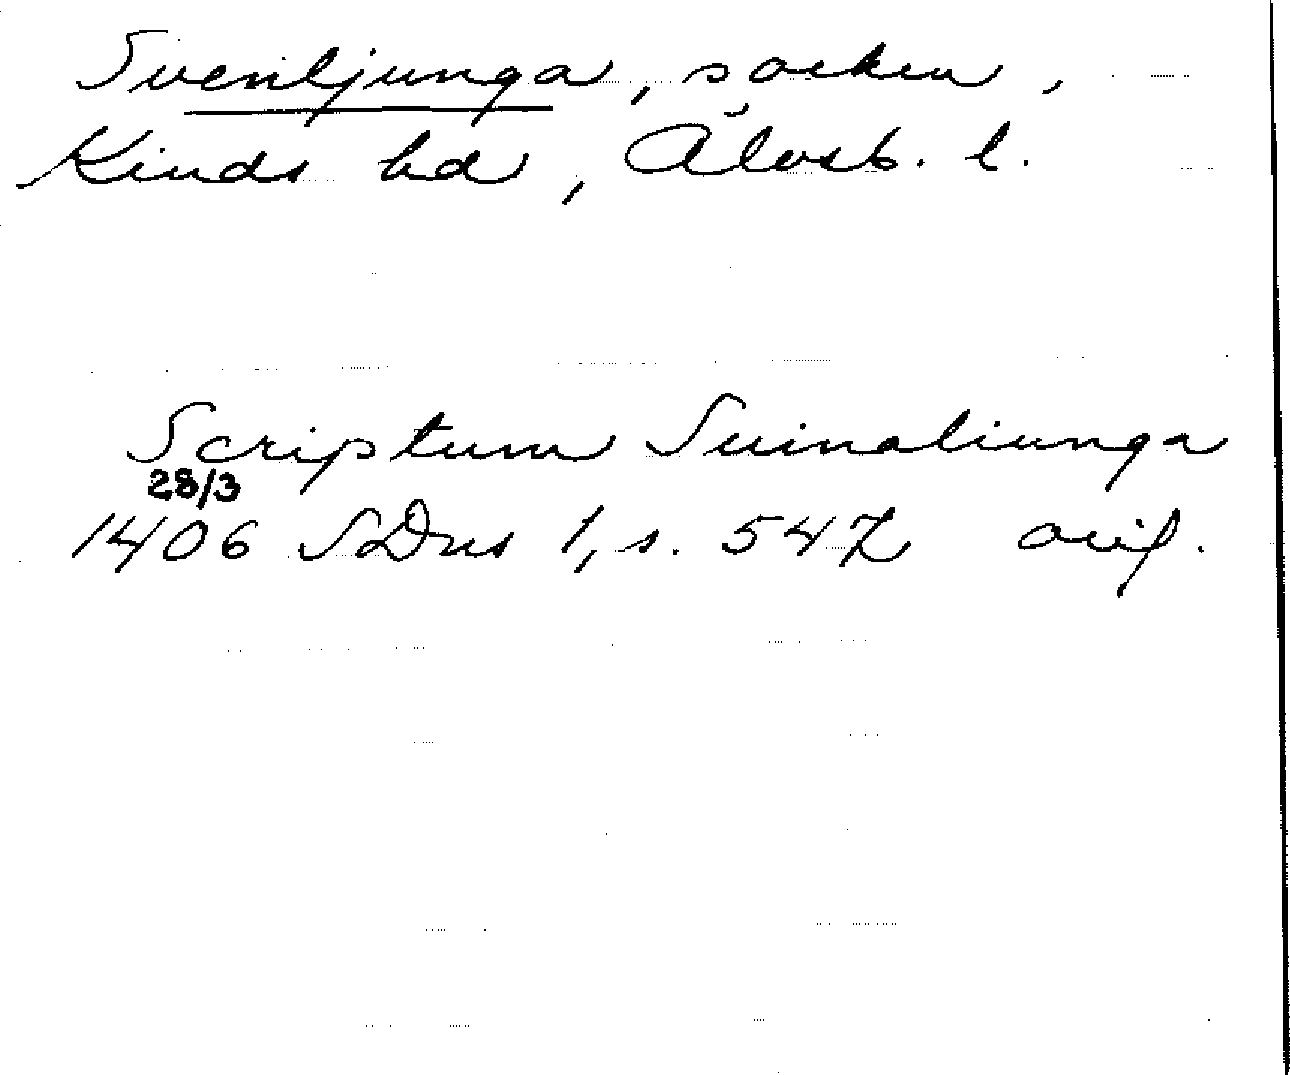 Svenljunga, socken,
Kinds hd, Älvsb. l.
Scriptum Suinaliunga
28/3
1406 SDns 1, s. 547 orig.